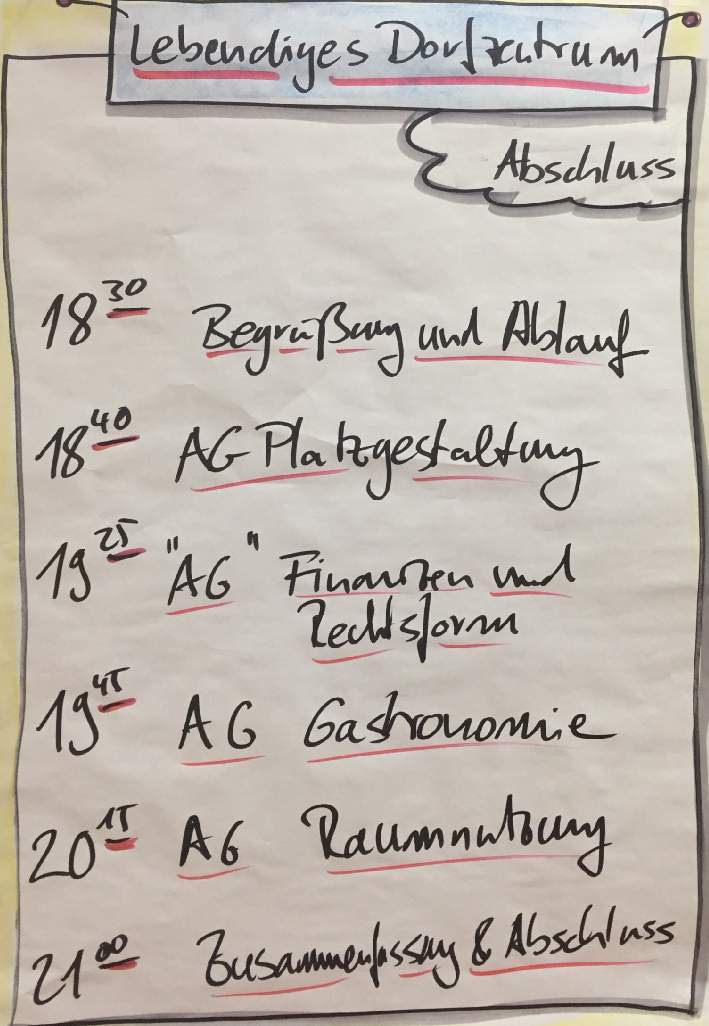 Lebendiges Dorfzentrum
Abschluss
18 30 Begrüßung und Ablauf
18 40 AG Platzgestaltung
19 25 "AG" Finanzen und
Rechtsform
19 45 AG Gastronomie
20 15 AG Raumnutzung
21 00 Zusammenfassung & Abschluss